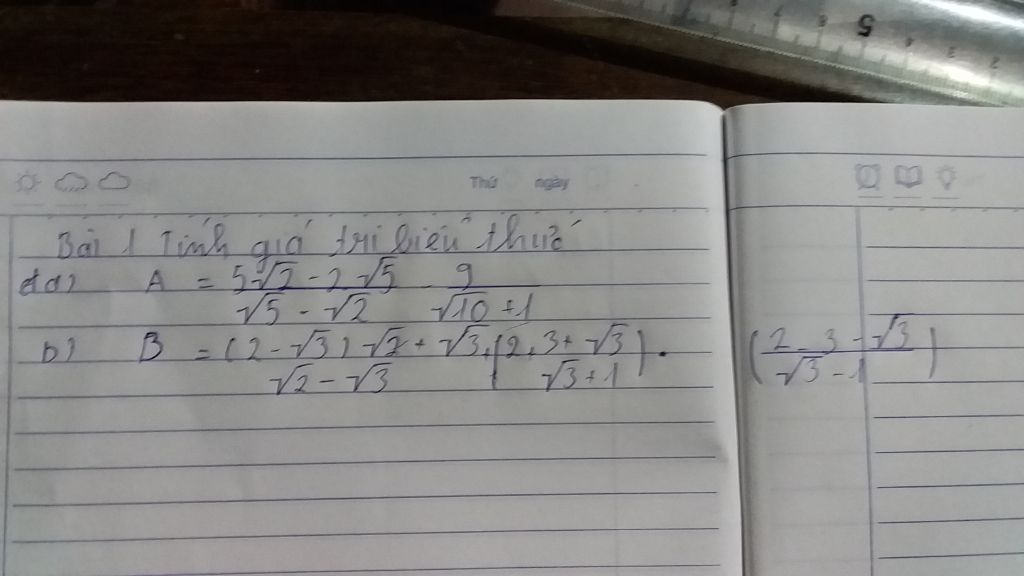 5
Thứ ngày
Bài 1 Tính giá trị biểu thức
a) A = \frac{5\sqrt{2} - 2\sqrt{5}}{\sqrt{5} - \sqrt{2}} - \frac{9}{\sqrt{10} + 1}
b) B = \frac{(2 - \sqrt{3})\sqrt{2 + \sqrt{3}}}{\sqrt{2 - \sqrt{3}}} \cdot \left(2 + \frac{3 + \sqrt{3}}{\sqrt{3} + 1}\right) \cdot \left(2 - \frac{3 - \sqrt{3}}{\sqrt{3} - 1}\right)